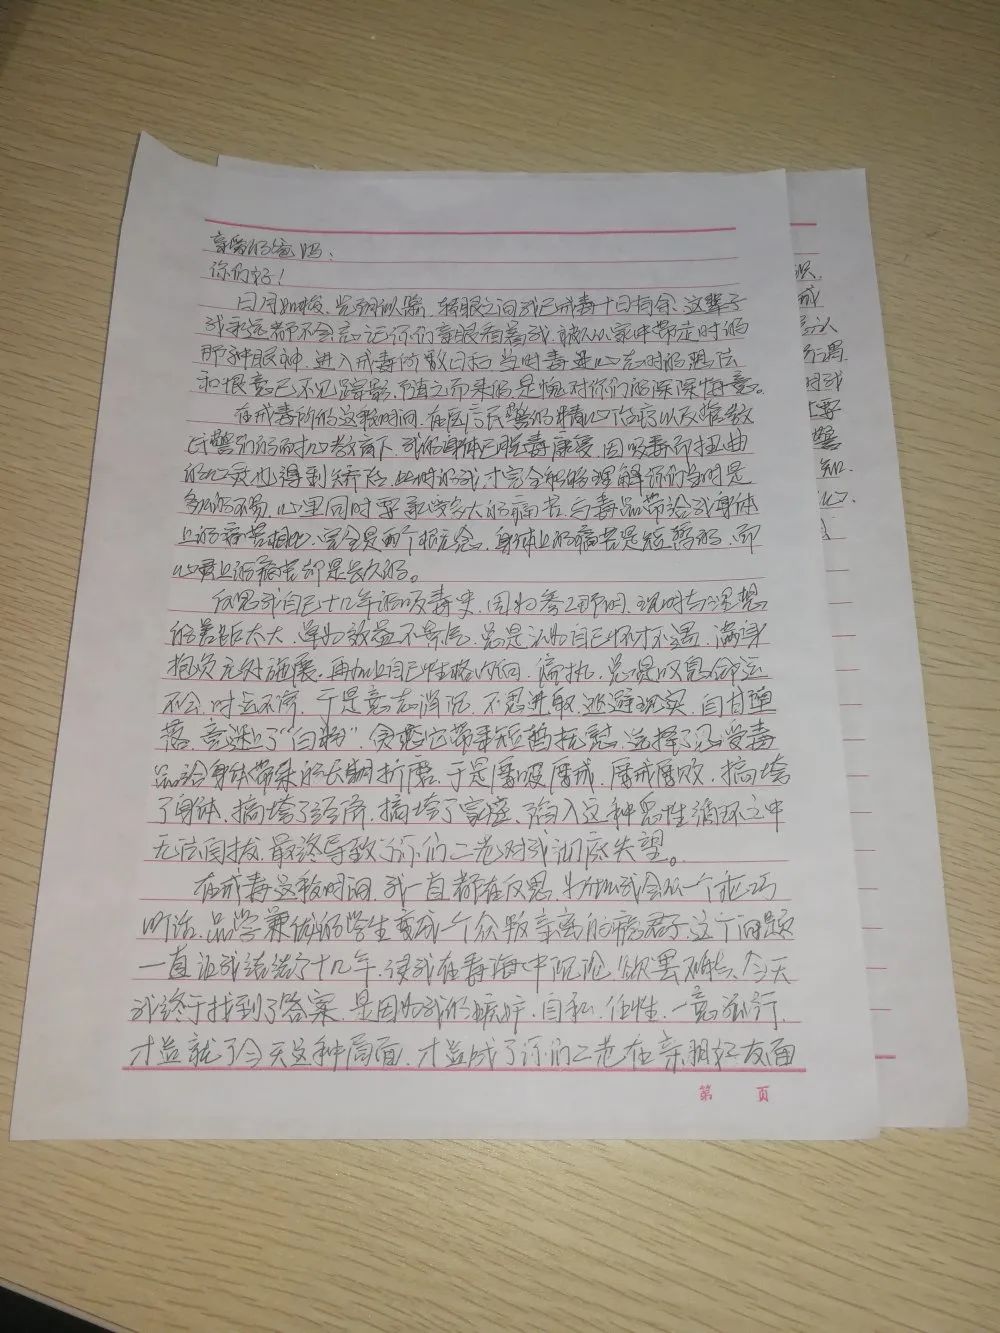 亲爱的爸妈:
你们好!
日月如梭,光阴似箭,转眼之间我已戒毒十日有余,这辈子
我永远都不会忘记你们亲眼看着我,被人从家中带走时的
那种眼神,进入戒毒所数日后,当时毒迷心志时的想法
和恨意已不见踪影,随之而来的是愧对你们的深深悔意。
在戒毒所的这段时间,在医疗民警的精心治疗以及管教
民警们的耐心教育下,我的身体已脱毒康复,因吸毒而扭曲
的心灵也得到矫治,此时的我才完全能够理解你们当时是
多么的不易,心里同时要承受多大的痛苦,与毒品带给我身体
上的痛苦相比,完全是两个概念,身体上的痛苦是短暂的,而
心灵上的痛苦却是长久的。
反思我自己十几年的吸毒史,因为参工那时,现时与理想
的差距太大,单位效益不景气,总是认为自己怀才不遇,满身
抱负无处施展,再加上自己性格内向,偏执,总是叹息命运
不公,时运不济,于是意志消沉,不思进取,逃避现实,自甘堕
落,竟迷上了“白粉”,贪恋它带来短暂抚慰,选择了忍受毒
品给身体带来的长期折磨,于是屡吸屡戒,屡戒屡败,搞垮
了身体,搞垮了经济,搞垮了家庭,陷入这种恶性循环之中
无法自拔,最终导致了你们二老对我彻底失望。
在戒毒这段时间,我一直都在反思,为什么我会从一个乖巧
听话,品学兼优的学生变成一个众叛亲离的瘾君子,这个问题
一直让我迷茫了十几年,使我在毒海中沉沦,欲罢不能,今天
我终于找到了答案,是因为我的嫉妒,自私,任性,一意孤行,
才造就了今天这种局面,才造成了你们二老在亲朋好友面
第 页